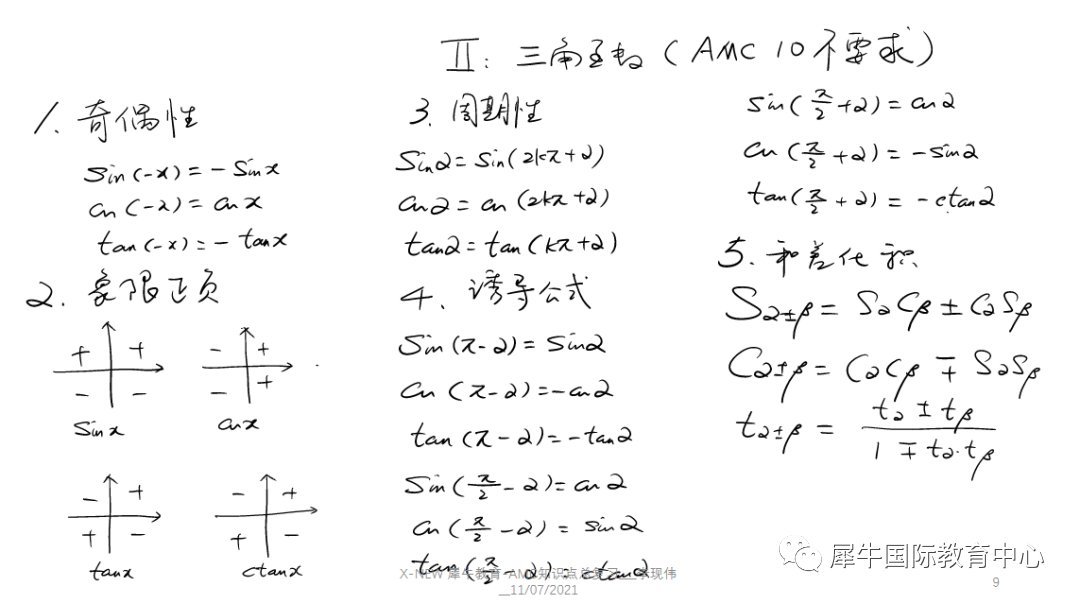 Ⅱ: 三角函数 (AMC 10不要求)
1. 奇偶性
sin(-x) = -sinx
cos(-x) = cosx
tan(-x) = -tanx
2. 象限正负
+ +
- -
sinx
- +
- +
cosx
- +
+ -
tanx
- +
+ -
ctanx
3. 周期性
sinα = sin(2kπ+α)
cosα = cos(2kπ+α)
tanα = tan(kπ+α)
4. 诱导公式
sin(π-α) = sinα
cos(π-α) = -cosα
tan(π-α) = -tanα
sin(π/2-α) = cosα
cos(π/2-α) = sinα
tan(π/2-α) = ctanα
sin(π/2+α) = cosα
cos(π/2+α) = -sinα
tan(π/2+α) = -ctanα
5. 和差化积
Sα±β = SαCβ ± CαSβ
Cα±β = CαCβ ∓ SαSβ
tα±β = (tα ± tβ)/(1 ∓ tα·tβ)
犀牛国际教育中心
X-NEW 犀牛教育-AMC知识点总复习 李现伟
11/07/2021
9